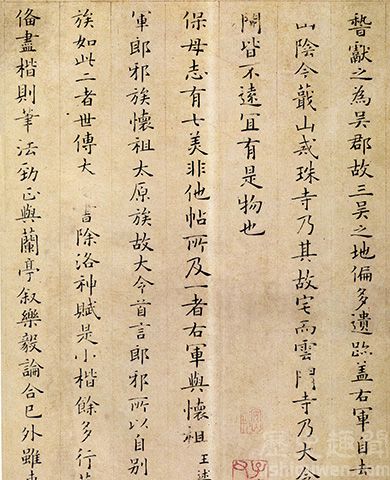 獻之為吳郡故三吳之地偏多遺跡蓋右軍自去
山陰今蕺山戒珠寺乃其故宅而雲門寺乃大令
皆不遠宜有是物也
保母志有七美非他帖所及一者右軍與懷祖王述
軍郎邪族懷祖太原族故大令首言郎邪所以自別
族如此二者世傳大 除洛神賦是小楷餘多行
備盡楷則筆法勁正與蘭亭叙樂毅論合已外雖